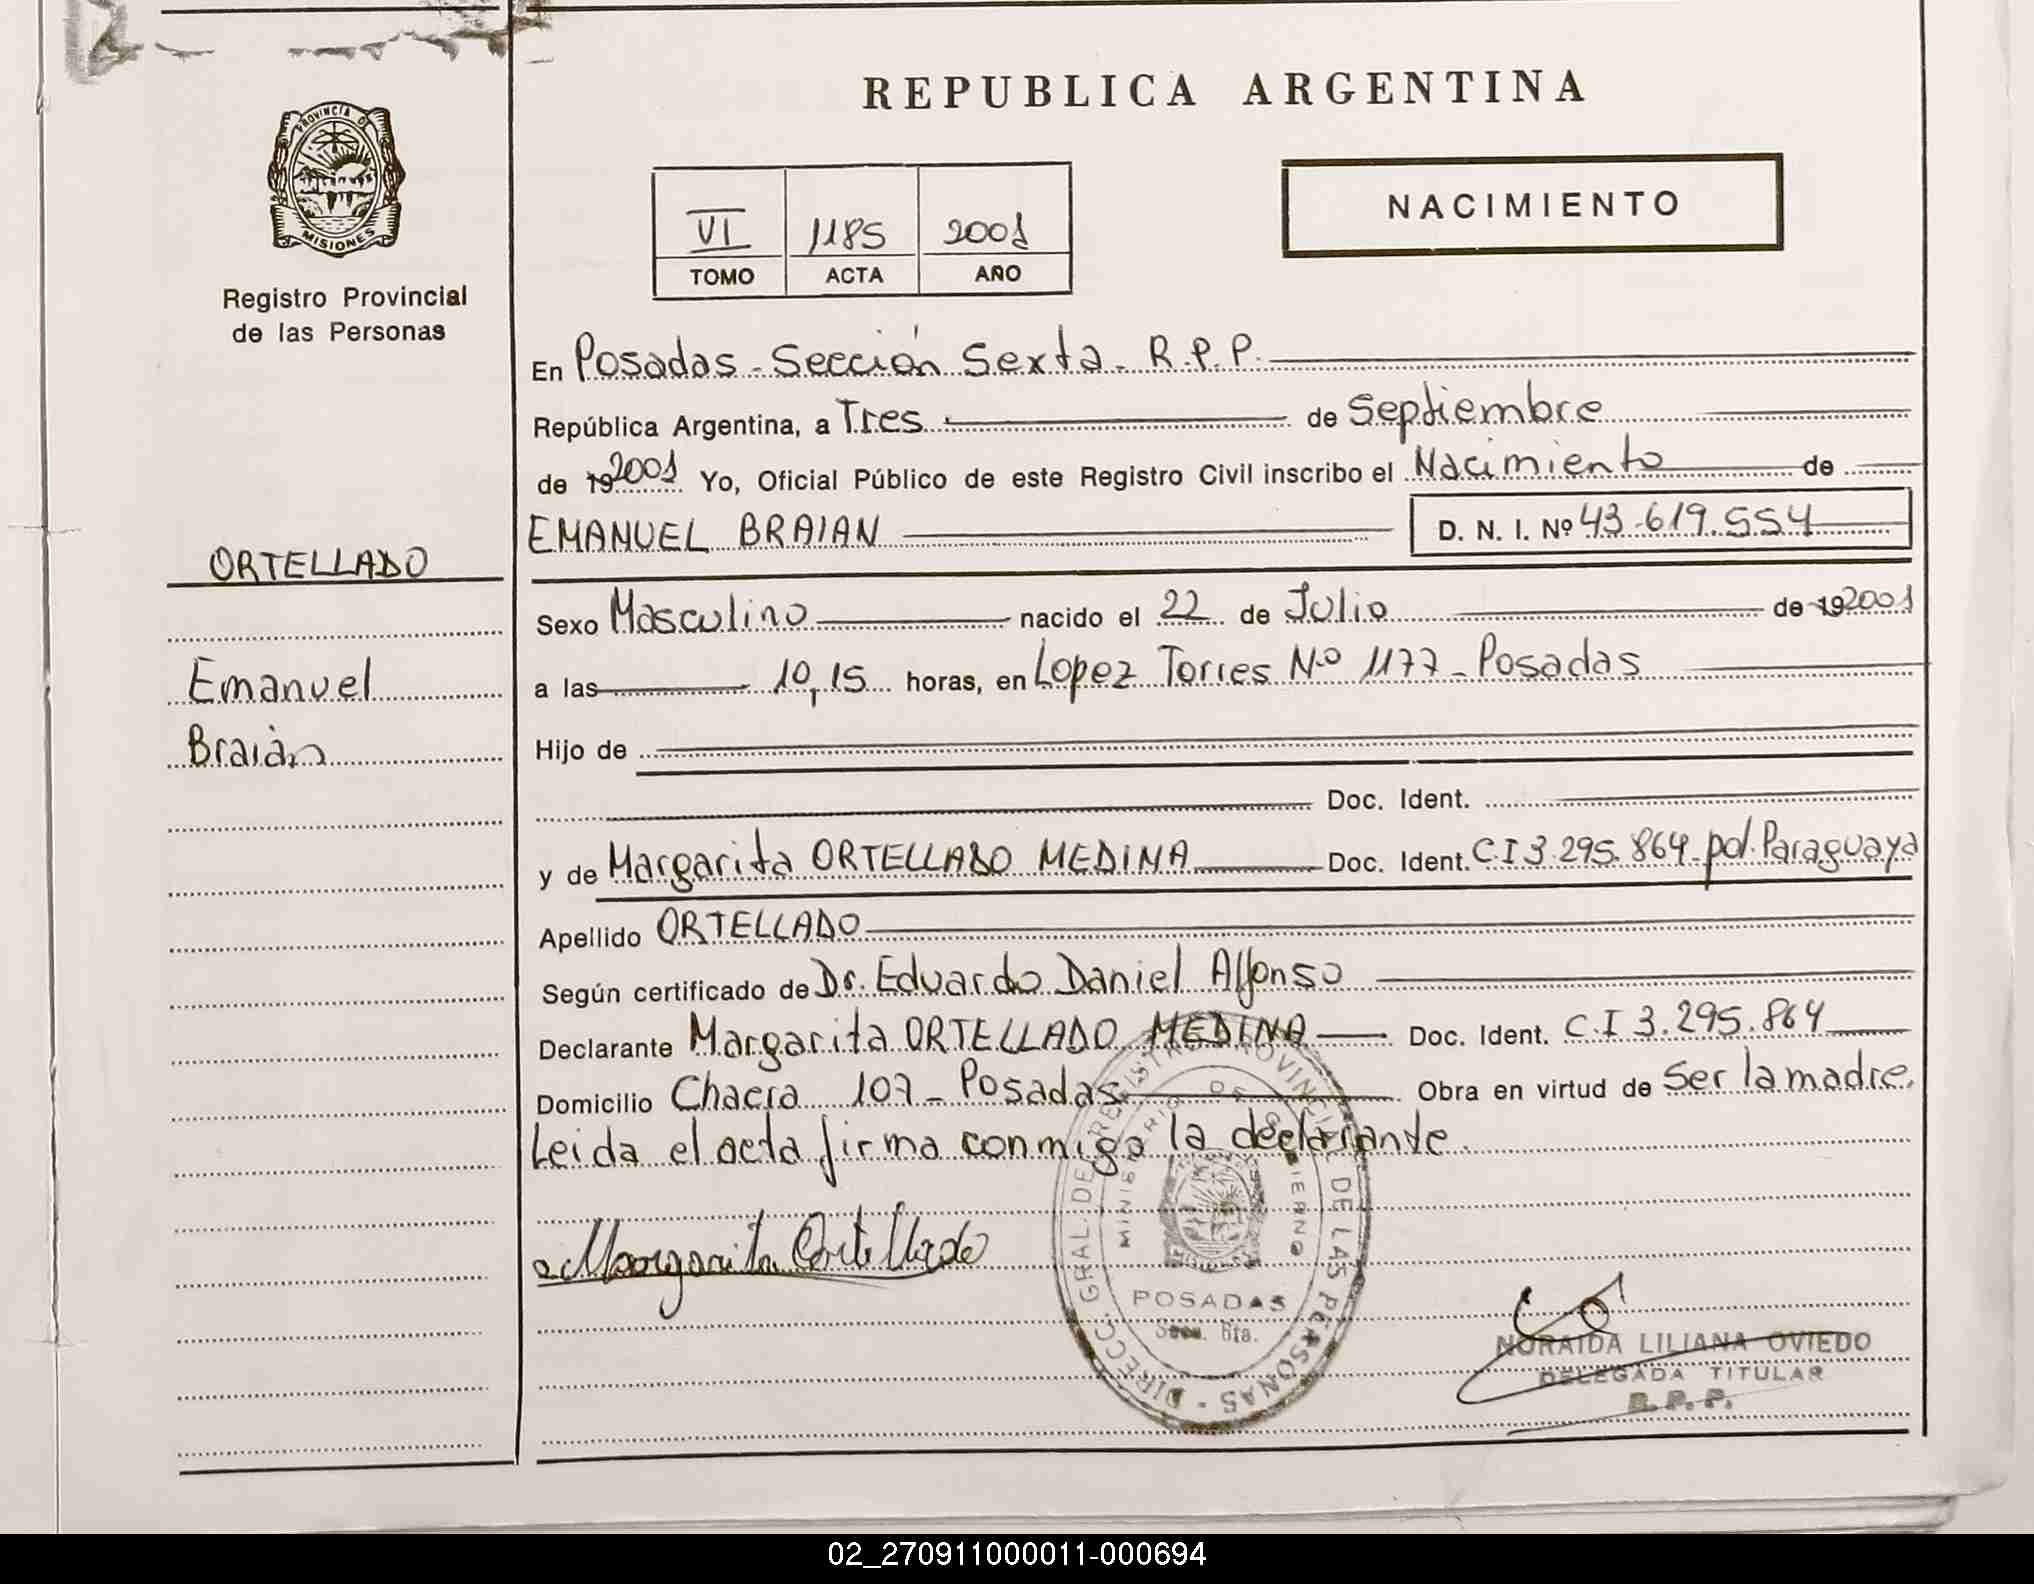 REPUBLICA ARGENTINA
PROVINCIA DE
MISIONES
Registro Provincial
de las Personas
VI 1185 2001
TOMO ACTA AÑO
NACIMIENTO
En Posadas - Sección Sexta - R.P.P.
República Argentina, a Tres de Septiembre
de 192001 Yo, Oficial Público de este Registro Civil inscribo el Nacimiento de
EMANUEL BRAIAN D. N. I. Nº 43.619.554
ORTELLADO
Emanuel
Braian
Sexo Masculino nacido el 22 de Julio de 192001
a las 10,15 horas, en Lopez Torres Nº 1177 - Posadas
Hijo de
Doc. Ident.
y de Margarita ORTELLADO MEDINA Doc. Ident. C.I 3.295.864 pol. Paraguaya
Apellido ORTELLADO
Según certificado de Dr. Eduardo Daniel Alfonso
Declarante Margarita ORTELLADO MEDINA Doc. Ident. C.I 3.295.864
Domicilio Chacra 107 - Posadas Obra en virtud de Ser la madre.
Leida el acta firma conmigo la declarante.
Margarita Ortellado
DIRECC. GRAL. DEL REGISTRO PROVINCIAL DE LAS PERSONAS
MINISTERIO DE GOBIERNO
POSADAS
Secc. 6ta.
NORAIDA LILIANA OVIEDO
DELEGADA TITULAR
R. P. P.
02_270911000011-000694